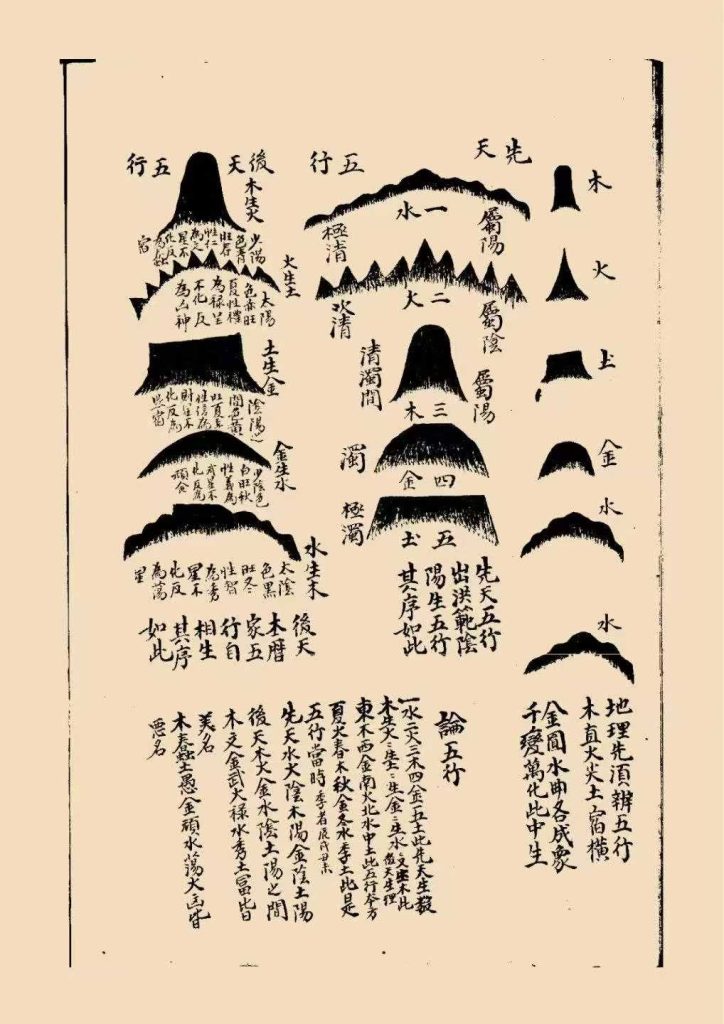 木
火
土
金
水
水
地理先湏辨五行
木直火尖土宿橫
金圓水曲各成象
千變萬化此中生
先天五行
一水
屬陽
極清
二火
屬陰
次清
三木
屬陽
清濁間
四金
濁
五土
極濁
先天五行
出洪範陰
陽生五行
其序如此
後天五行
木生火
少陽
色青
旺春
性仁
為文
星不
化反
為蠢
宿
火生土
太陽
色赤旺
夏性禮
為禄星
不化反
為凶神
土生金
陰陽之
間色黃
旺夏季
性信為
財星不
化反為
金生水
少陰色
白旺秋
性義為
武星不
化反為
頑金
水生木
太陰
色黑
旺冬
性智
為秀
星不
化反
為蕩
星
後天
本曆
家五
行自
相生
其序
如此
論五行
一水二火三木四金五土此先天生數
木生火〻生〻生金〻生水〻又生木此後天生理
東木西金南火北水中土此五行本方
夏火春木秋金冬水季土此是
五行當時季者辰戌丑未
先天水火陰木陽金陰土陽
後天木火金水陰土陽之間
木文金武火禄水秀土富皆曰
美名
木蠢土愚金頑水蕩火凶皆
惡名